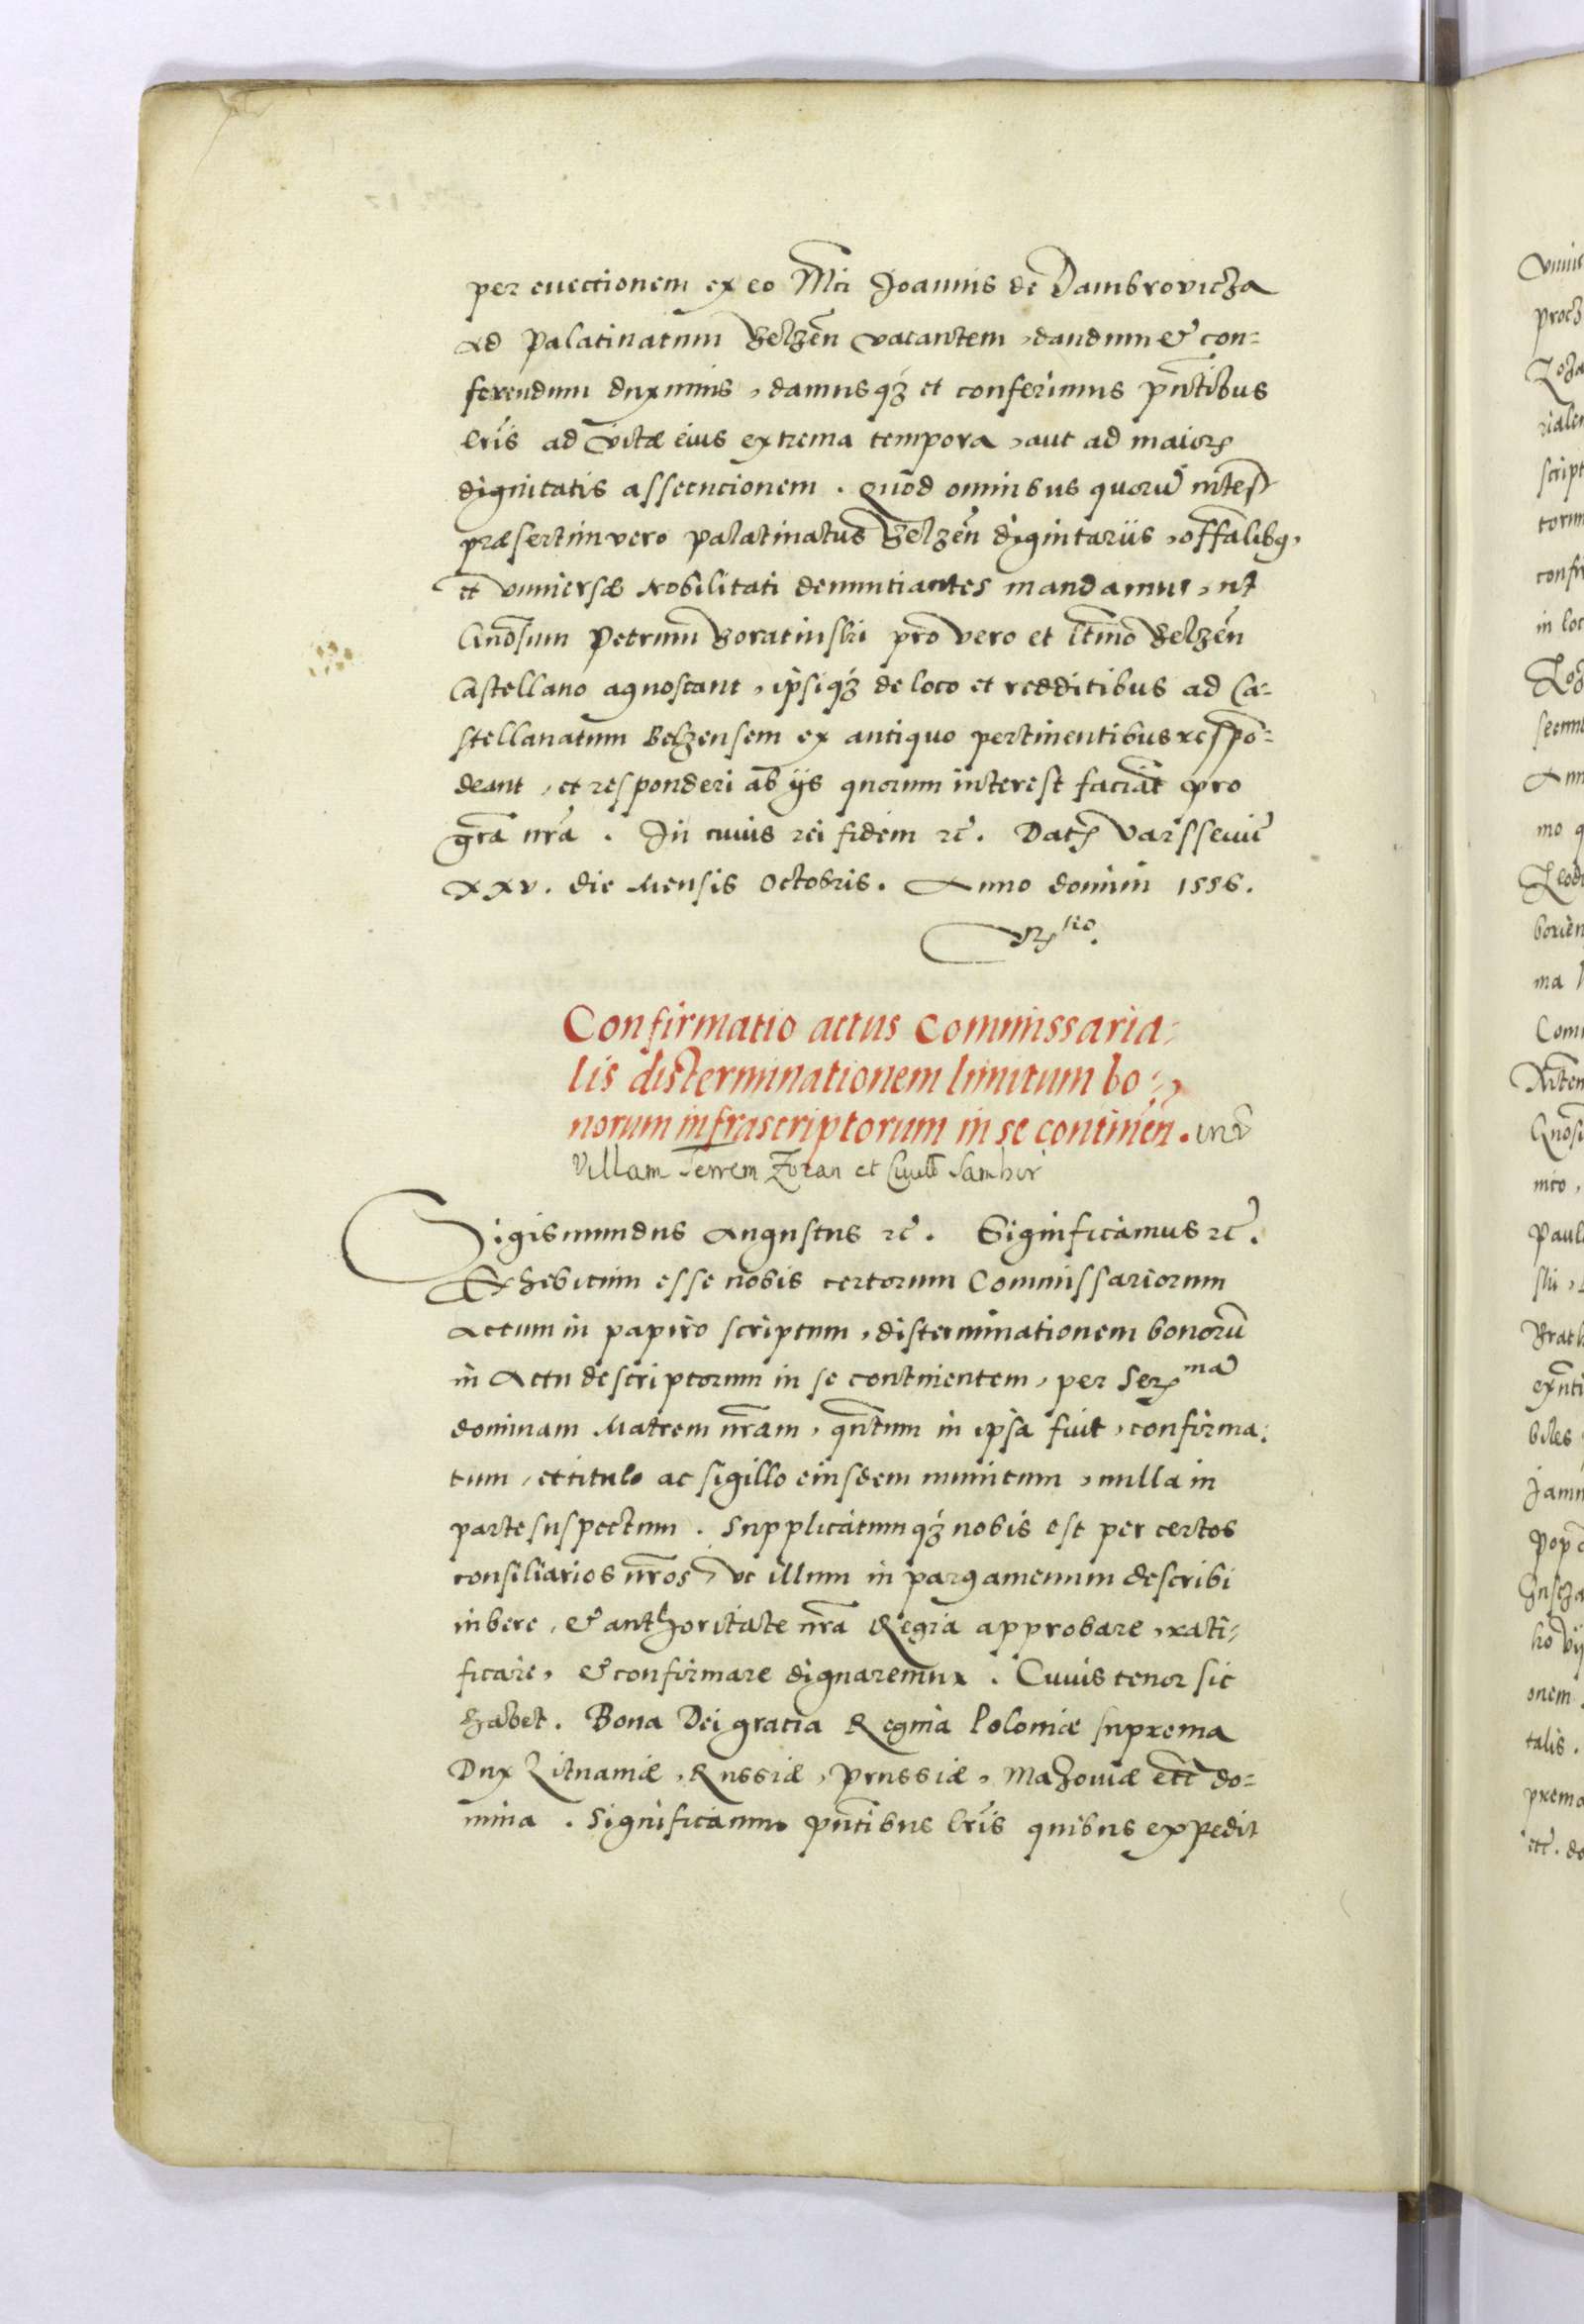 per euectionem ex eo Mci Joannis de Dambrovicza
ad Palatinatum Belzen̄ vacantem, dandum & con=
ferendum duximus, damusqȝ et conferimus pn̄tibus
lr̄is ad vitæ eius extrema tempora, aut ad maioris
dignitatis assecucionem. Quod omnibus quorū intest
præsertim vero Palatinatus Belzen̄ dignitariis, offālibq,
et vniuersæ Nobilitati denuntiantes mandamus, ut
Gn̄osum Petrum Boratinski pro vero et ltimo Belzen̄
Castellano agnoscant, ipsiqȝ de loco et redditibus ad Ca=
stellanatum Belzensem ex antiquo pertinentibus respō=
deant, et responderi ab ijs quorum interest faciāt pro
gr̄a nr̄a. In cuius rei fidem rc̄. Dat Varssevie
XXV. die Mensis Octobris. Anno domini 1556.
Confirmatio actus Commissaria=
lis disterminationem limitum bo=
norum infrascriptorum in se continen̄.
Villam Terrem Zoran et Sambor
Sigismundus Augustus rc̄. Significamus rc̄.
Exhebitum esse nobis certorum Commissariorum
Actum in papiro scriptum, disterminationem bonorū
in Actu descriptorum in se continentem, per Ser mā
dominam Matrem nr̄am, qn̄tum in ipsa fuit, confirma=
tum, et titulo ac sigillo eiusdem munitum, nulla in
parte suspectum. Supplicatumqȝ nobis est per certos
consiliarios nr̄os, ut illum in pargamenum describi
iubere, & authoritate nr̄a Regia approbare, rati=
ficare, & confirmare dignaremur. Cuius tenor sic
habet. Bona Dei gratia Regina Poloniæ suprema
Dux Lituaniæ, Russiæ, Prussiæ, Mazouiæ etc̄ do=
mina. Significamus pn̄tibus lr̄is quibus expedit